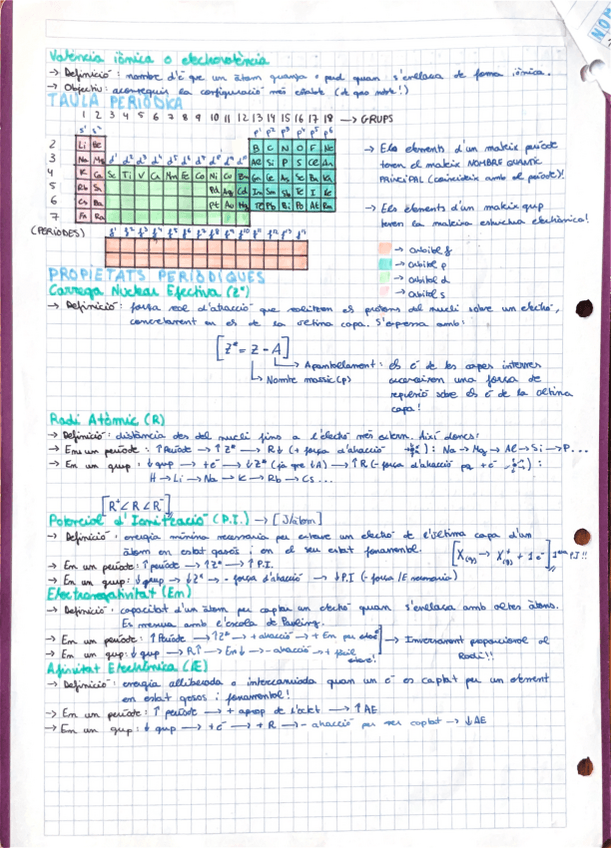 València iònica o electrovalència
→ Definició: nombre d'e⁻ que un àtom guanya o perd quan s'enllaça de forma iònica.
→ Objectiu: aconseguir la configuració més estable (de gas noble!)
TAULA PERIÒDICA
1 2 3 4 5 6 7 8 9 10 11 12 13 14 15 16 17 18 → GRUPS
s¹ s² p¹ p² p³ p⁴ p⁵ p⁶
2 Li Be B C N O F Ne
3 Na Mg d¹ d² d³ d⁴ d⁵ d⁶ d⁷ d⁸ d⁹ d¹⁰ Al Si P S Cl Ar
4 K Ca Sc Ti V Cr Mn Fe Co Ni Cu Zn Ga Ge As Se Br Kr
5 Rb Sr Pd Ag Cd In Sn Sb Te I Xe
6 Cs Ba Pt Au Hg Tl Pb Bi Po At Rn
7 Fr Ra
(PERÍODES) f¹ f² f³ f⁴ f⁵ f⁶ f⁷ f⁸ f⁹ f¹⁰ f¹¹ f¹² f¹³ f¹⁴
→ Els elements d'un mateix període
tenen el mateix NOMBRE QUÀNTIC
PRINCIPAL (coincideix amb el període)!
→ Els elements d'un mateix grup
tenen la mateixa estructura electrònica!
→ orbital f
→ orbital p
→ orbital d
→ orbital s
PROPIETATS PERIÒDIQUES
Carrega Nuclear Efectiva (Z*)
→ Definició: força real d'atracció que realitzen els protons del nucli sobre un electró,
concretament en els de la última capa. S'expressa amb:
[Z* = Z - A]
→ Apantallament: els e⁻ de les capes internes
exerceixen una força de
repulsió sobre els e⁻ de la última
capa!
→ Nombre màssic (p)
Radi Atòmic (R)
→ Definició: distància des del nucli fins a l'electró més extern. Així doncs:
→ En un període: ↑ Període → ↑ Z* → R↓ (+ força d'atracció): Na → Mg → Al → Si → P...
→ En un grup: ↓ grup → + e⁻ → ↓ Z* (ja que ↓A) → ↑ R (- força d'atracció per + e⁻):
H → Li → Na → K → Rb → Cs...
[R⁺ < R < R⁻]
Potencial d'Ionització (P.I.) → [J/àtom]
→ Definició: energia mínima necessària per extreure un electró de l'última capa d'un
àtom en estat gasós i en el seu estat fonamental.
[X(g) → X⁺(g) + 1 e⁻] P.I!!
→ En un període: ↑ període → ↑ Z* → ↑ P.I.
→ En un grup: ↓ grup → ↓ Z* → - força d'atracció → ↓ P.I (- força/E necessària)
Electronegativitat (En)
→ Definició: capacitat d'un àtom per captar un electró quan s'enllaça amb altres àtoms.
Es mesura amb l'escala de Pauling.
→ En un període: ↑ Període → ↑ Z* → + atracció → + En per
→ En un grup: ↓ grup → R↑ → En↓ → - atracció → + fàcil
→ Inversament proporcional al
Radi!!
Afinitat Electrònica (AE)
→ Definició: energia alliberada o intercanviada quan un e⁻ és captat per un element
en estat gasós i fonamental!
→ En un període: ↑ període → + aprop de l'octet → ↑ AE
→ En un grup: ↓ grup → + e⁻ → + R → - atracció per ser captat → ↓ AE